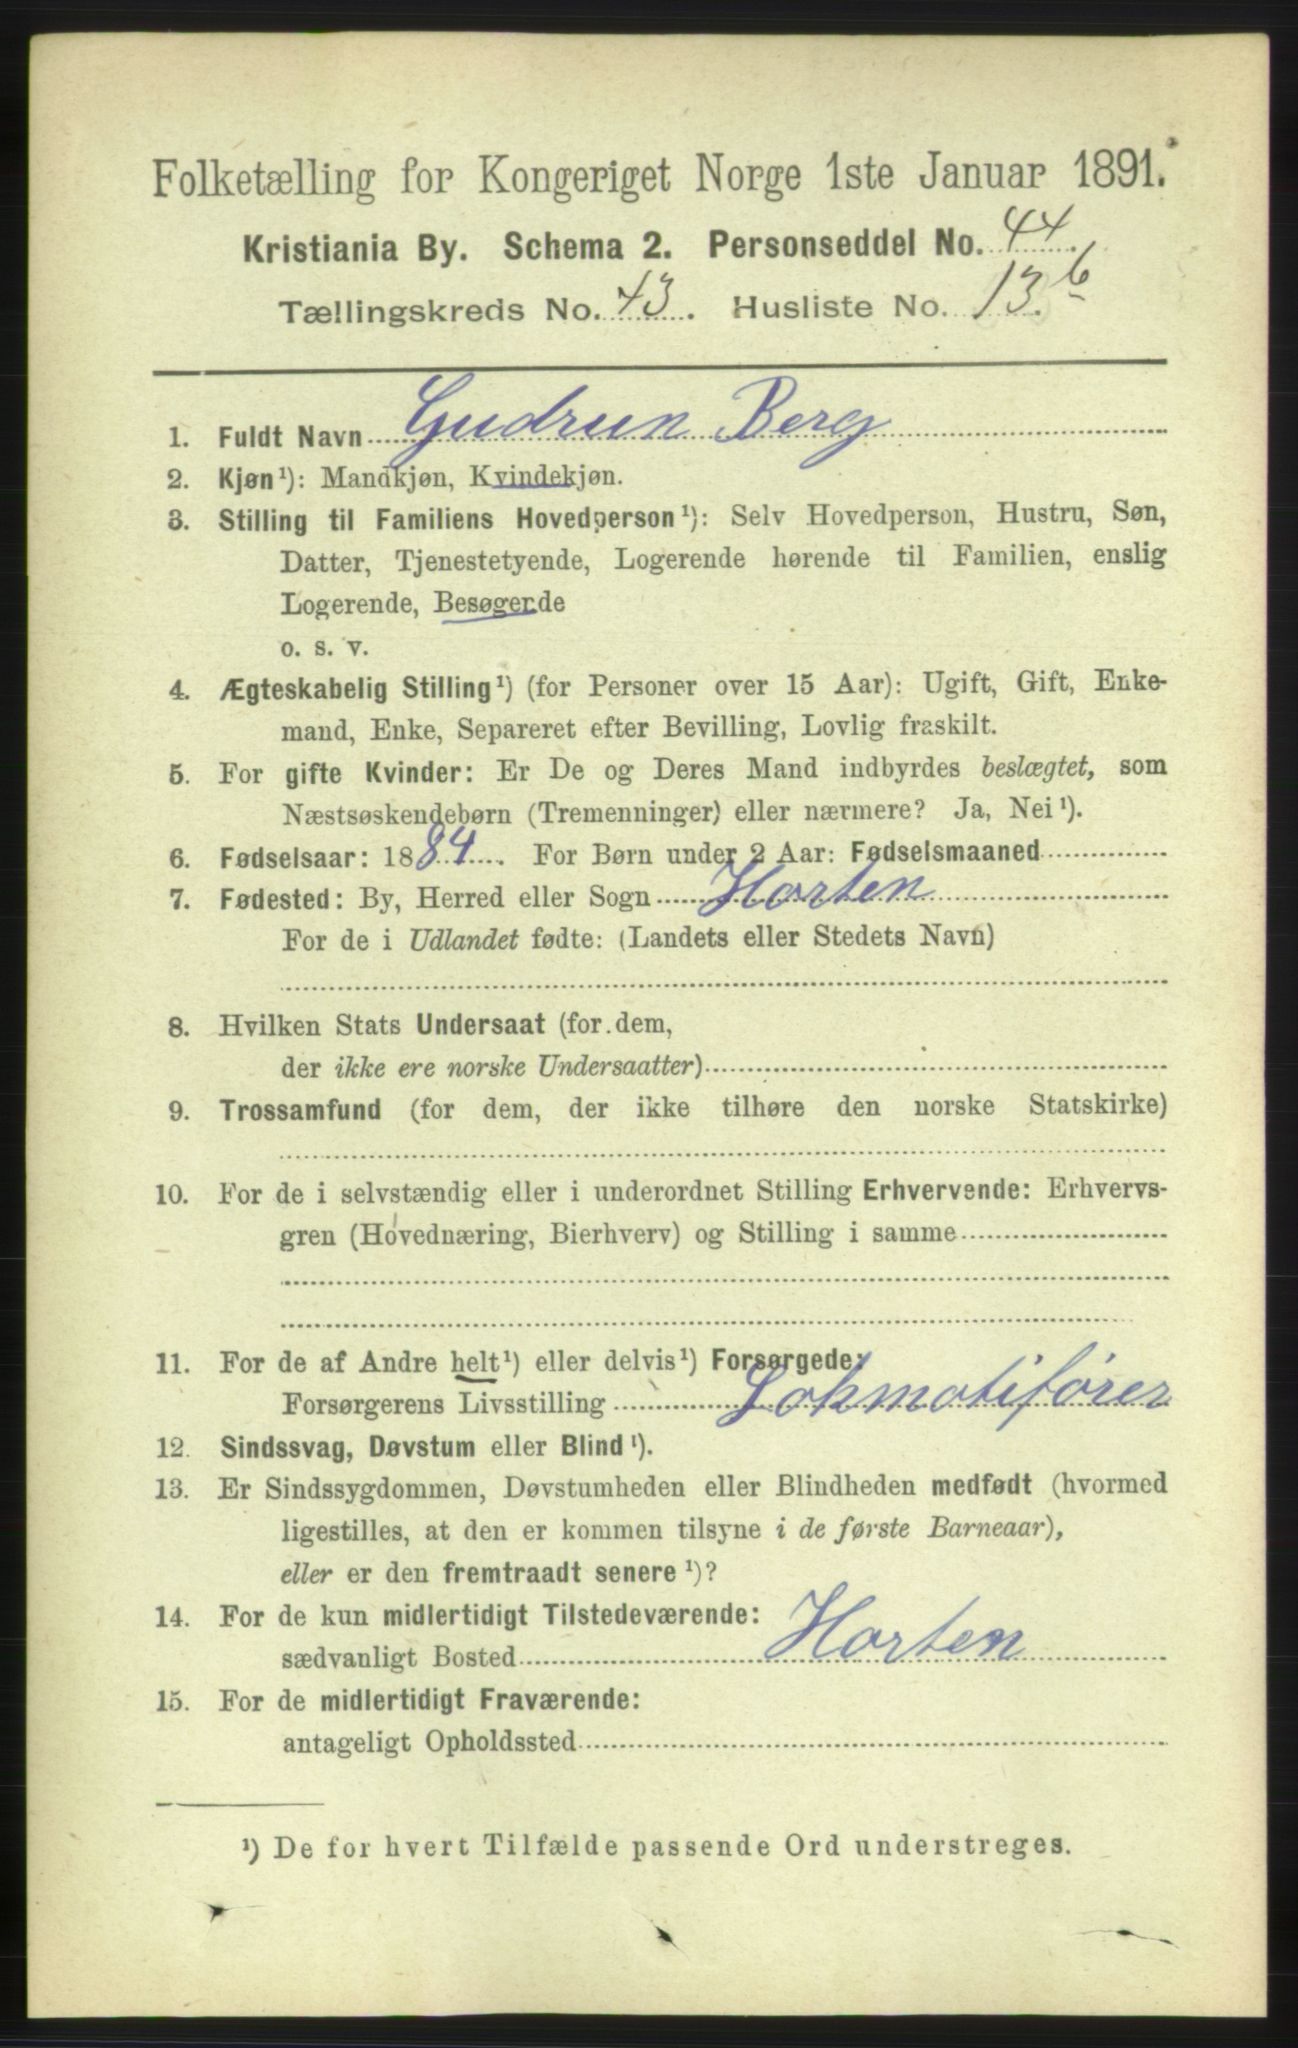 Folketælling for Kongeriget Norge 1ste Januar 1891.
Kristiania By. Schema 2. Personseddel No. 44.
Tællingskreds No. 43. Husliste No. 13.b
1. Fuldt Navn Gudrun Berg
2. Kjøn¹): Mandkjøn, Kvindekjøn.
3. Stilling til Familiens Hovedperson¹): Selv Hovedperson, Hustru, Søn,
Datter, Tjenestetyende, Logerende hørende til Familien, enslig
Logerende, Besøgende
o. s. v.
4. Ægteskabelig Stilling¹) (for Personer over 15 Aar): Ugift, Gift, Enke-
mand, Enke, Separeret efter Bevilling, Lovlig fraskilt.
5. For gifte Kvinder: Er De og Deres Mand indbyrdes beslægtet, som
Næstsøskendebørn (Tremenninger) eller nærmere? Ja, Nei¹).
6. Fødselsaar: 1884. For Børn under 2 Aar: Fødselsmaaned
7. Fødested: By, Herred eller Sogn Horten
For de i Udlandet fødte: (Landets eller Stedets Navn)
8. Hvilken Stats Undersaat (for dem,
der ikke ere norske Undersaatter)
9. Trossamfund (for dem, der ikke tilhøre den norske Statskirke)
10. For de i selvstændig eller i underordnet Stilling Erhvervende: Erhvervs-
gren (Hovednæring, Bierhverv) og Stilling i samme
11. For de af Andre helt¹) eller delvis¹) Forsørgede:
Forsørgerens Livsstilling Lokmotifører
12. Sindssvag, Døvstum eller Blind¹).
13. Er Sindssygdommen, Døvstumheden eller Blindheden medfødt (hvormed
ligestilles, at den er kommen tilsyne i de første Barneaar),
eller er den fremtraadt senere¹)?
14. For de kun midlertidigt Tilstedeværende:
sædvanligt Bosted Horten
15. For de midlertidigt Fraværende:
antageligt Opholdssted
¹) De for hvert Tilfælde passende Ord understreges.